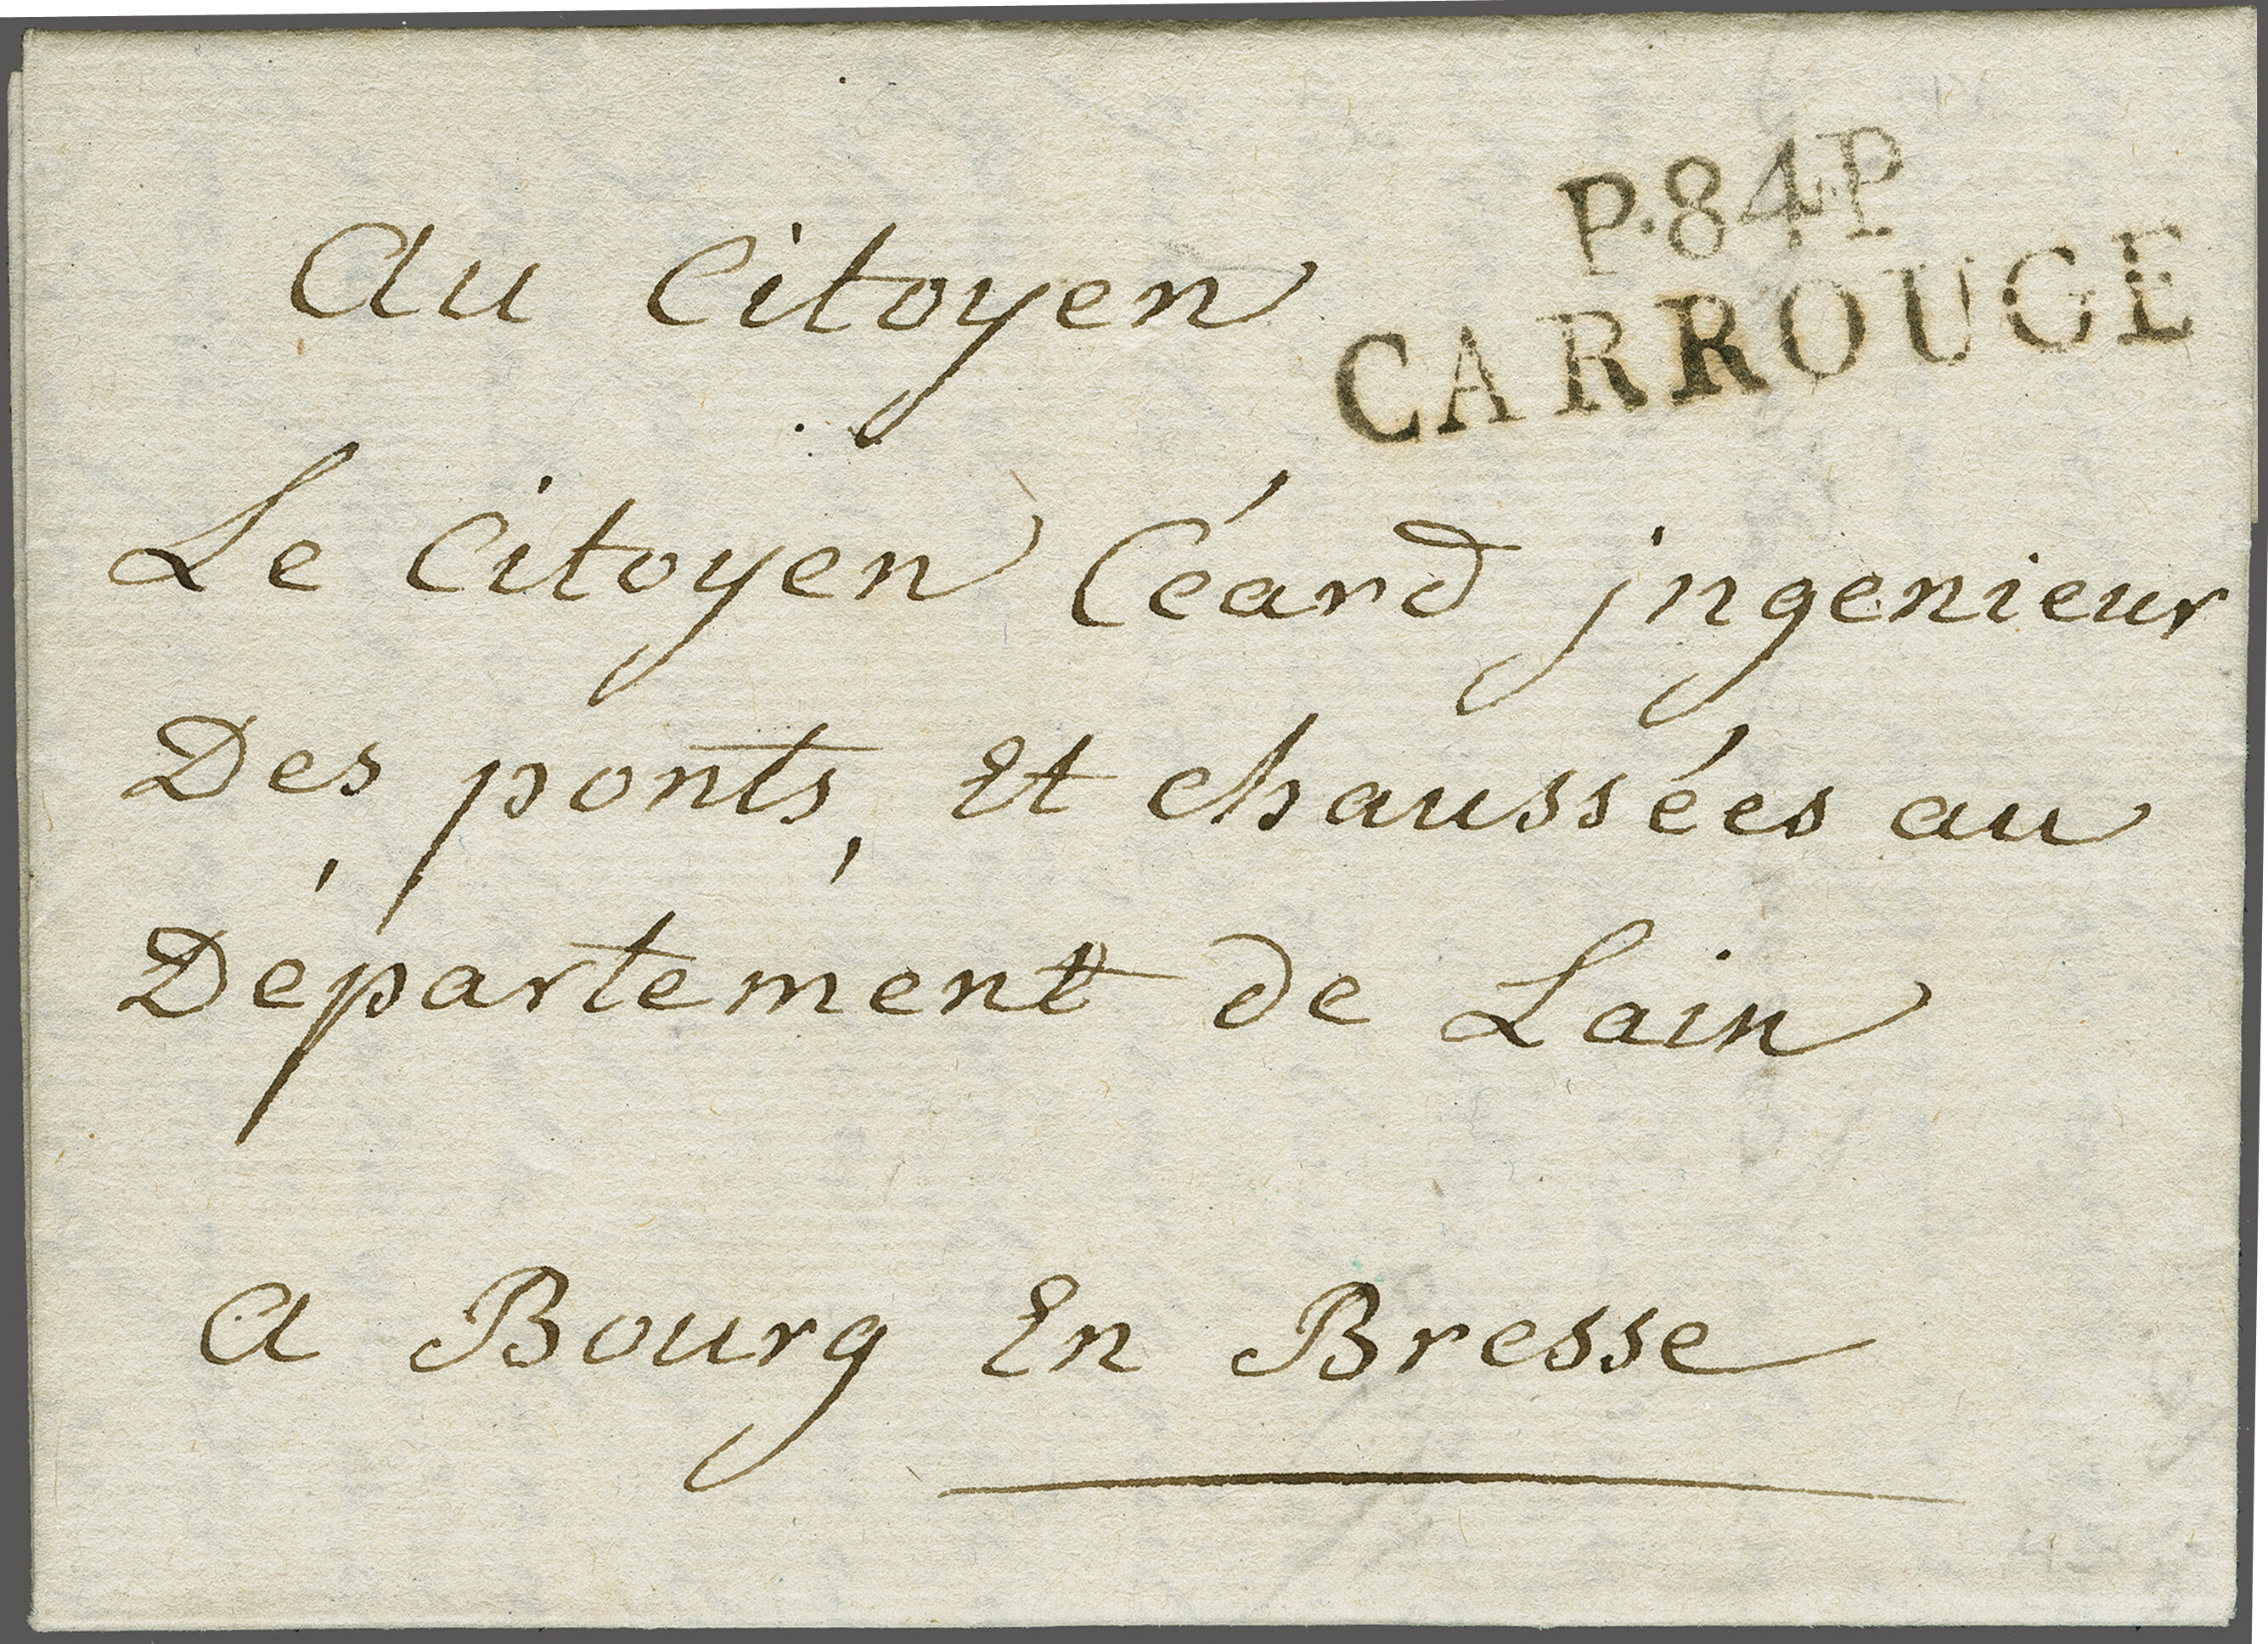 P.84.P
CARROUGE
Au Citoyen
Le Citoyen Céard jngenieur
Des ponts, Et chaussées au
Département de Lain
A Bourg En Bresse